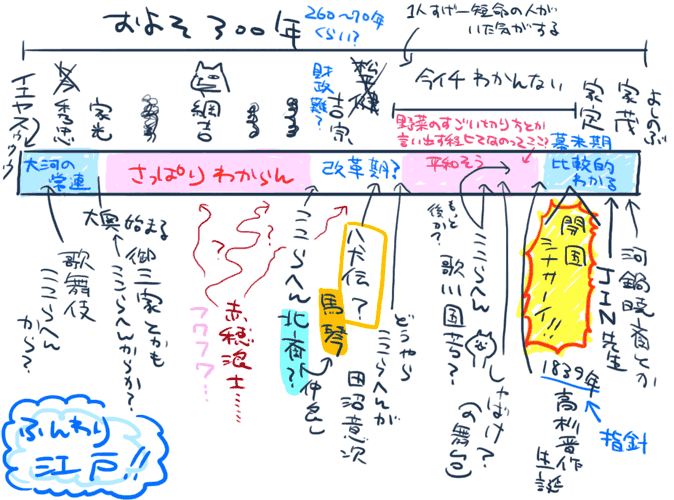 およそ300年
260〜70年
くらい？
1人すげー短命の人が
いた気がする
イエヤスゥゥゥ
秀忠
家光
綱吉
財政難？
吉宗
今イチわかんない
家定
家茂
よしのぶ
大河の
常連
さっぱりわからん
改革期？
野菜のすごい切り方とか
平和そう
幕末期
比較的
わかる
大奥始まる
歌舞伎
ここらへん
から？
御三家とかも
ここらへんからか？
フワフワ…
赤穂浪士……
ここらへん
北斎？
仲良し
馬琴
八犬伝？
田沼意次
どうやら
ここらへんが
もっと
後か？
ここらへん
歌川国芳？
しゃばけ？
(の舞台)
開国
シナサーイ!!
1839年
高杉晋作
生誕
指針
JIN先生
河鍋暁斎とか
ふんわり
江戸!!